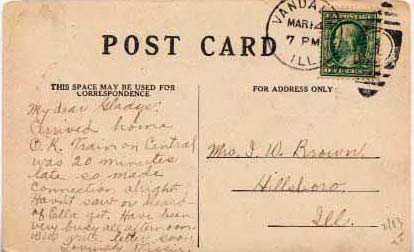 VANDA
MAR 12
7 PM
ILL.
POST CARD
THIS SPACE MAY BE USED FOR
CORRESPONDENCE
FOR ADDRESS ONLY
My dear Gladys:
Arrived home
O.K. Train on Central
was 20 minutes
late so made
connection alright.
Havn't saw or heard
of Ella yet. Have been
very busy all afternoon.
letter soon
Mrs. I. W. Brown
Hillsboro,
Ill.